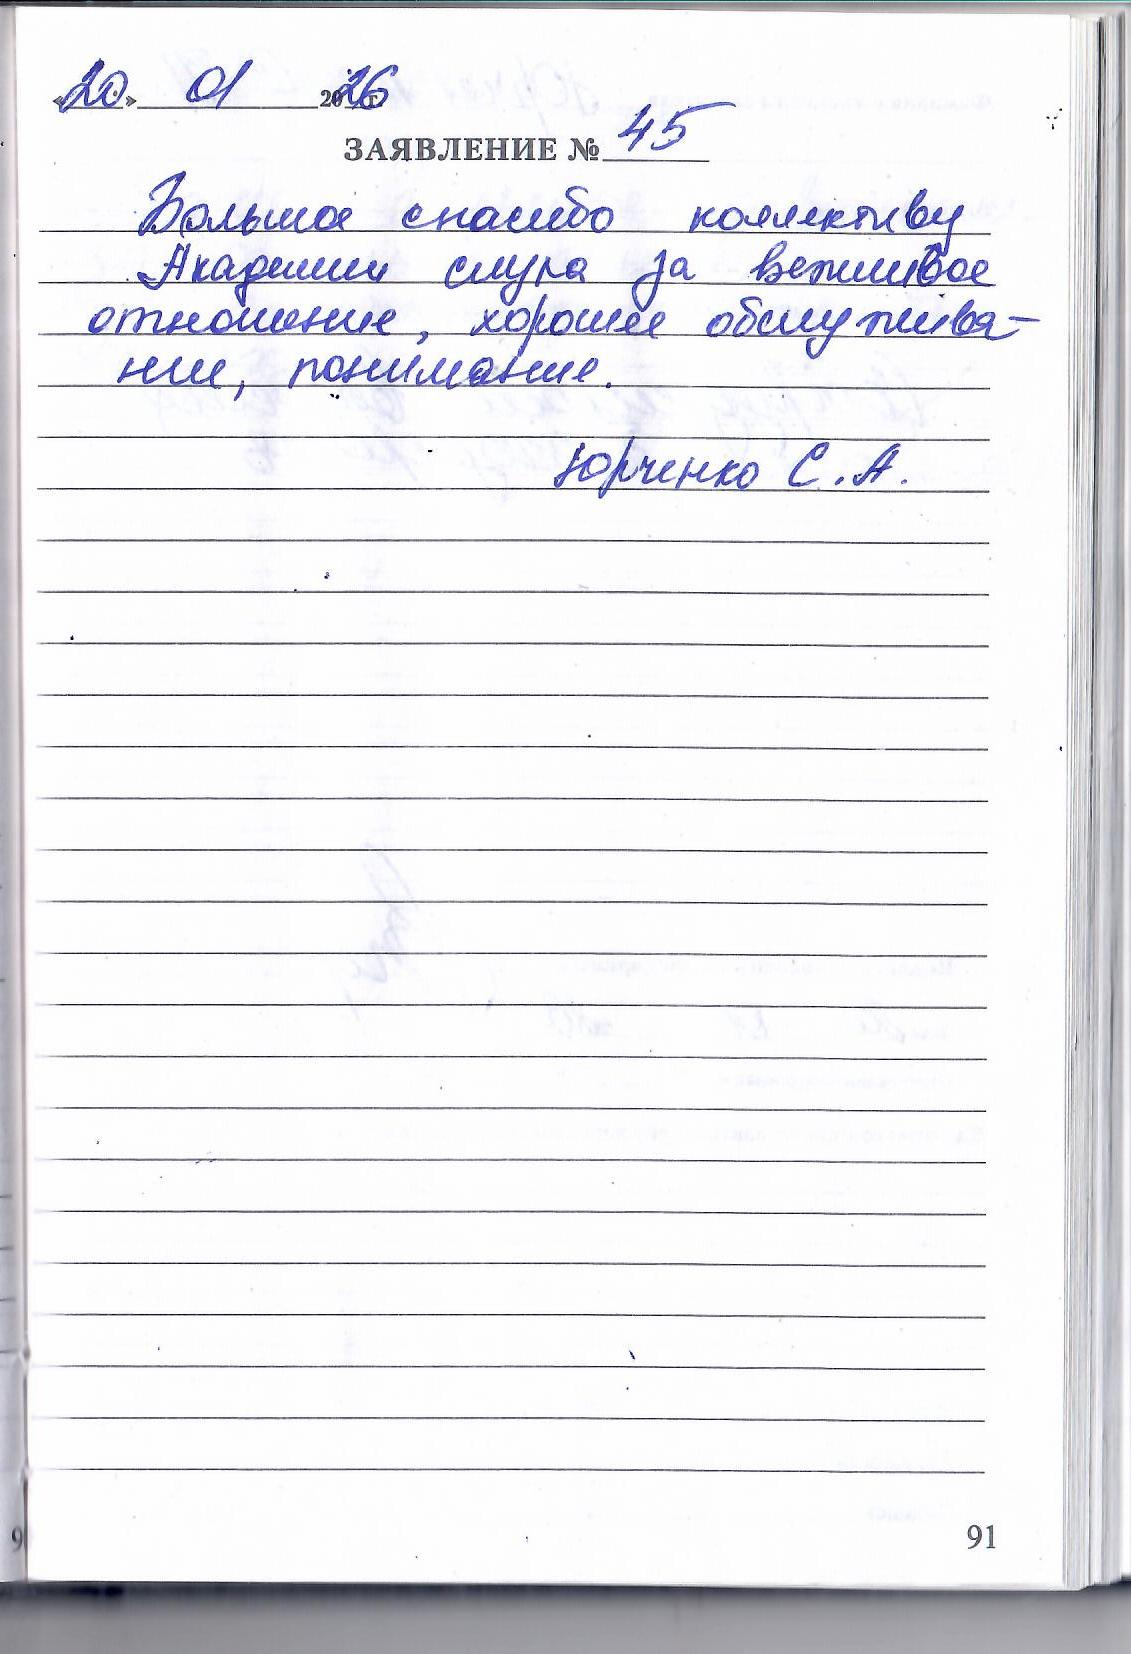 «20» 01 2026 г.
ЗАЯВЛЕНИЕ № 45
Большое спасибо коллективу
Академии слуха за вежливое
отношение, хорошее обслужива-
ние, понимание.
Юрченко С.А.
91